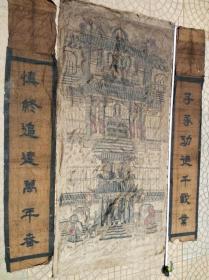 子承功德千載業
慎終追遠萬年香